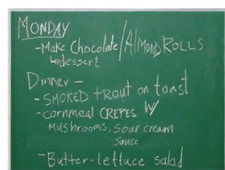 MONDAY
-Make Chocolate/Almond ROLLS
dessert
Dinner -
- SMOKED trout on toast
- cornmeal CREPES w/
Mushrooms, Sour cream
Sauce
- Butter-lettuce salad